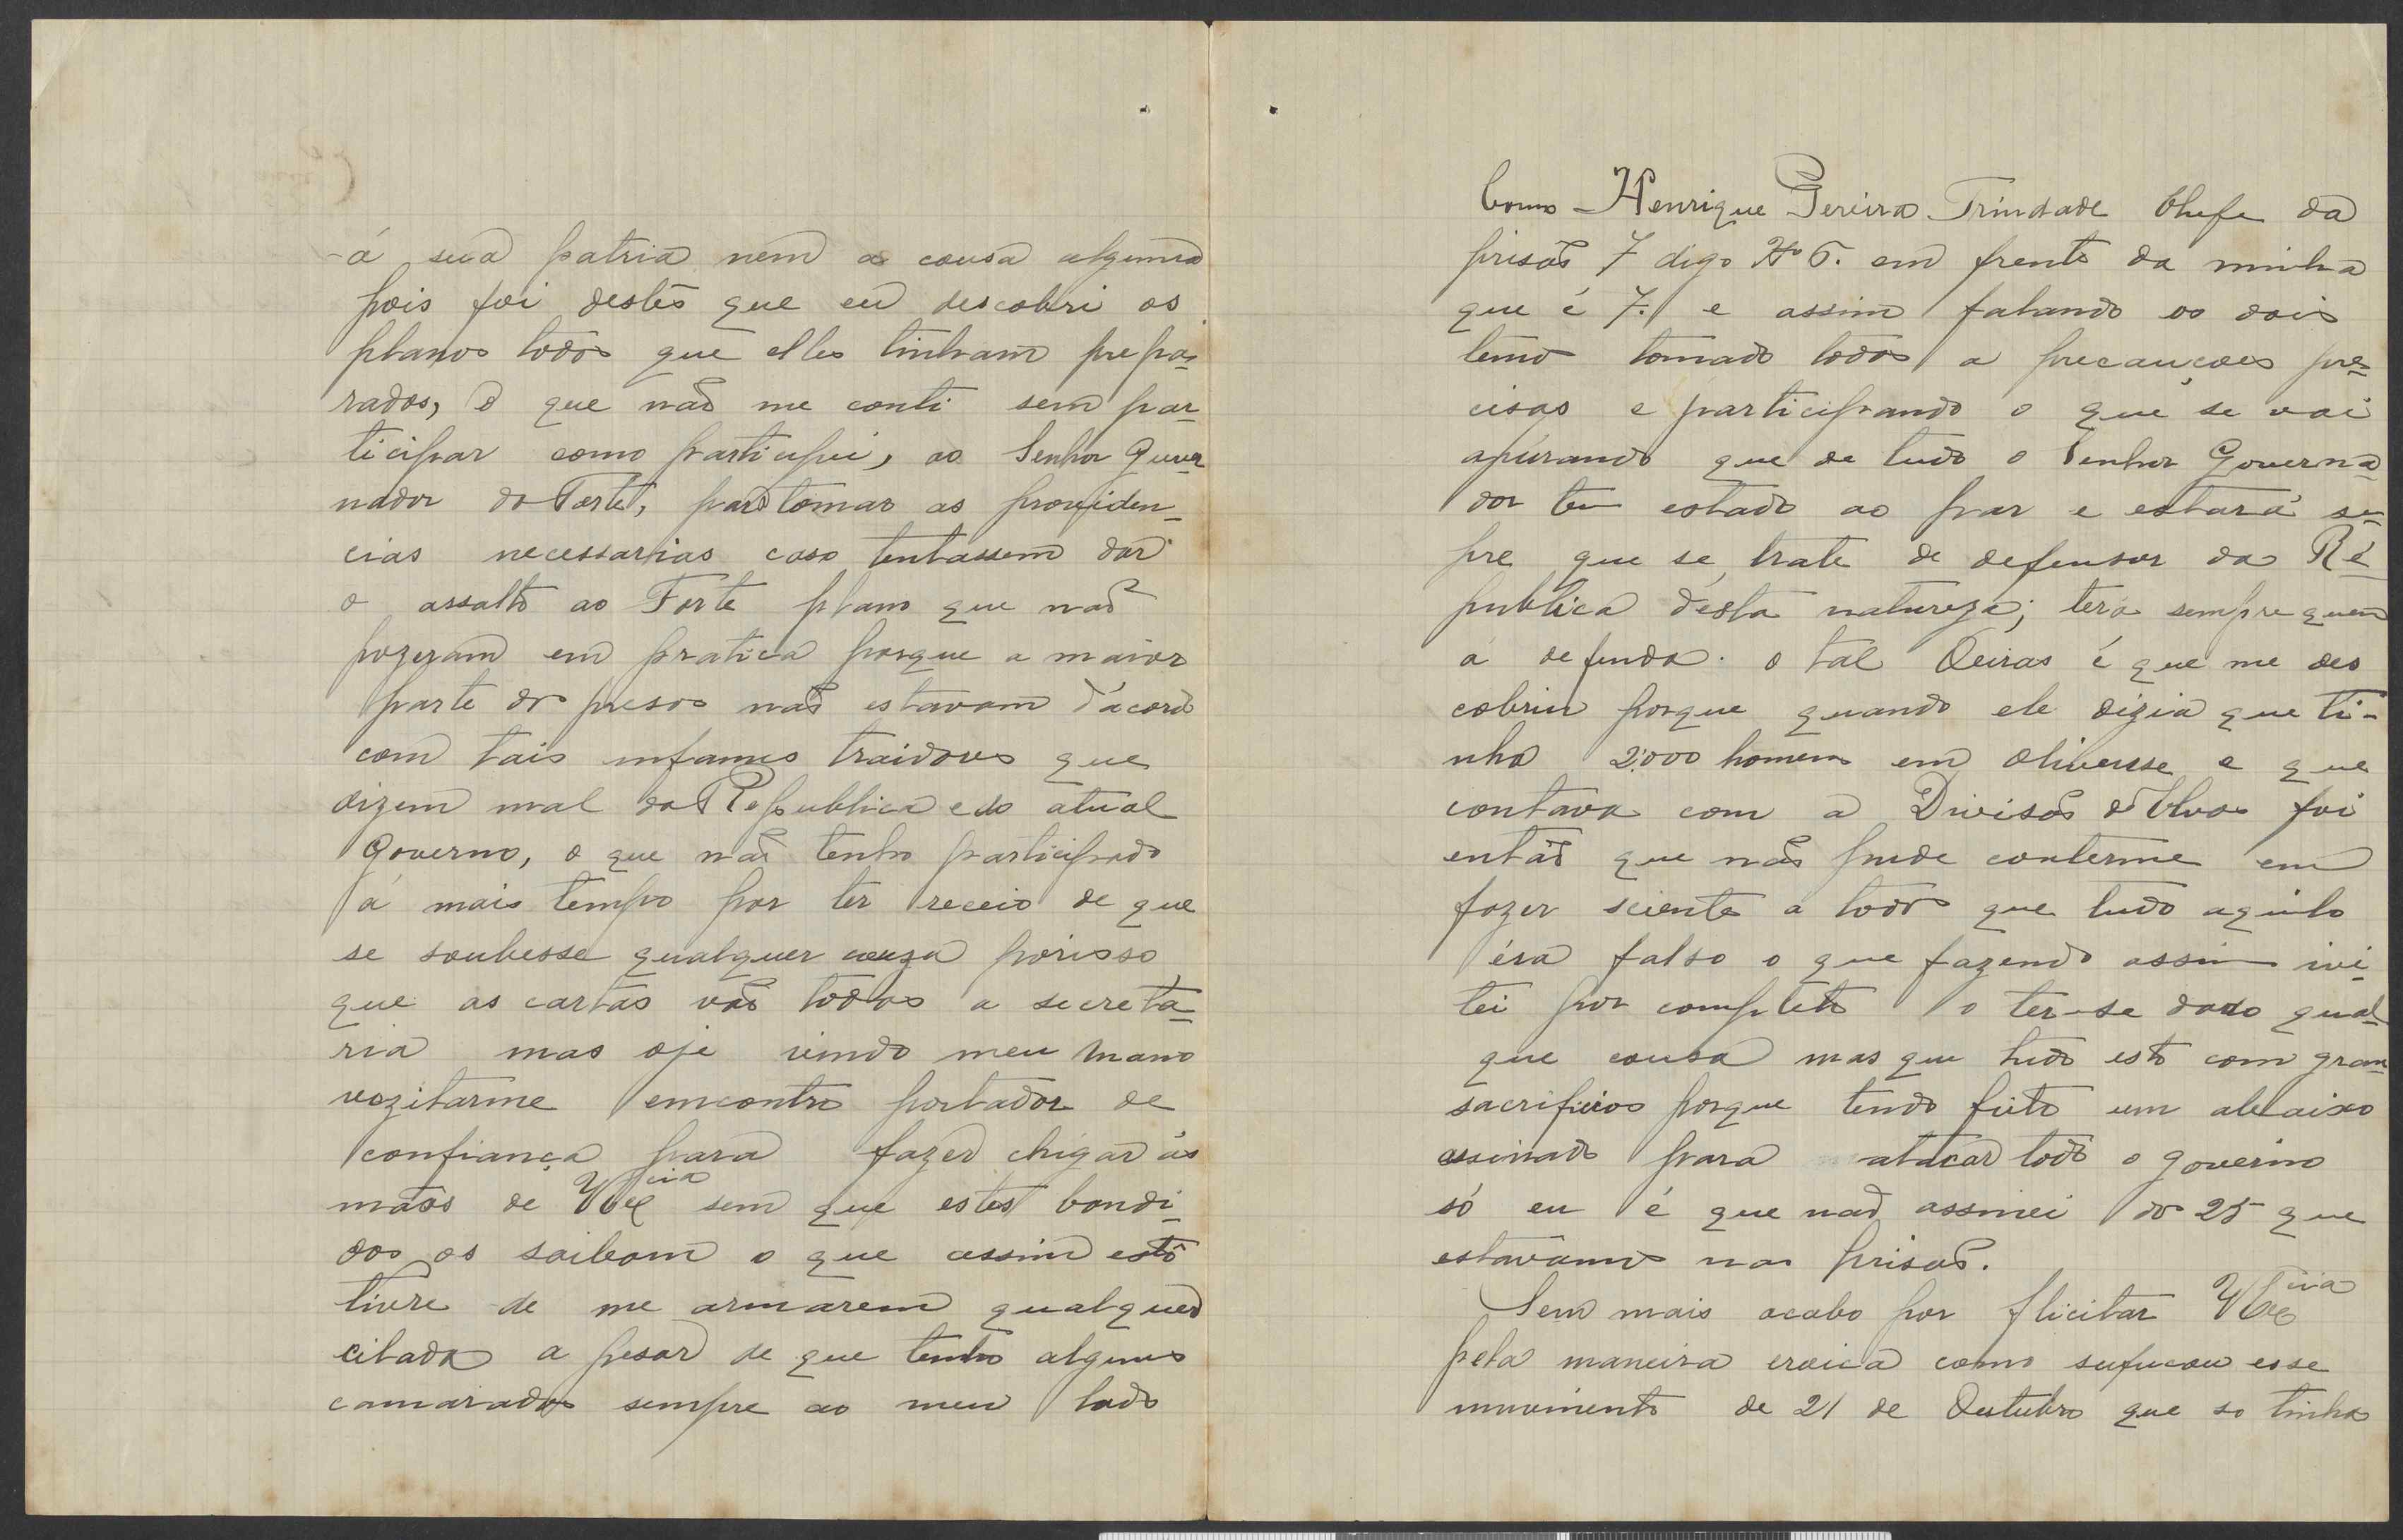 á sua patria nem a cousa alguma
pois foi destes que eu descobri os
planos todos que elles tinham prepa-
rados, o que não me conti sem par-
ticipar como participei, ao Senhor Guver
nador do Forte, para tomar as providen-
cias necessarias caso tentassem dar
o assalto ao Forte plano que não
pozeram em pratica porque a maior
parte dos presos não estavam d'acordo
com tais infames traidores que
dizem mal da Republica e do atual
Governo, o que não tenho participado
á mais tempo por ter receio de que
se soubesse qualquer couza porisso
que as cartas vão todas a secreta-
ria mas oje vindo meu mano
vezitarme emcontro portador de
confiança para fazer chigar ás
mãos de V Ex cia sem que estes bandi-
dos os saibam o que assim estô
livre de me armarem qualquer
cilada a pesar de que tenho alguns
camaradas sempre ao meu lado
Como Henrique Pereira Trindade Chefe da
prisão 7 digo Nº 6. em frente da minha
que é 7. e assim falando os dois
temos tomado todas a precauções pre-
cisas e participando o que se vai
apurando que de tudo o Senhor Governa-
dor tem estado ao par e estará se-
pre que se trate de defensor da Ré-
publica desta natureza; tera sempre quem
a defenda. o tal Oeiras é que me des
cobriu porque quando ele dizia que ti-
nha 2:000 homens em Olivensse e que
contava com a Divisão d'Elvas foi
então que não pude conterme em
fazer sciente a todos que tudo aquilo
éra falso o que fazendo assim ivi-
tei por completo o ter-se dado qual-
que cousa mas que tudo isto com gran-
sacrificios porque tendo feito um abaixo
assinado para atacar todo o governo
só eu é que não assinei dos 25 que
estavamos na prisão.
Sem mais acabo por flicitar V Ex cia
pela maneira eroica como sufucou esse
muvimento de 21 de Outubro que so tinha